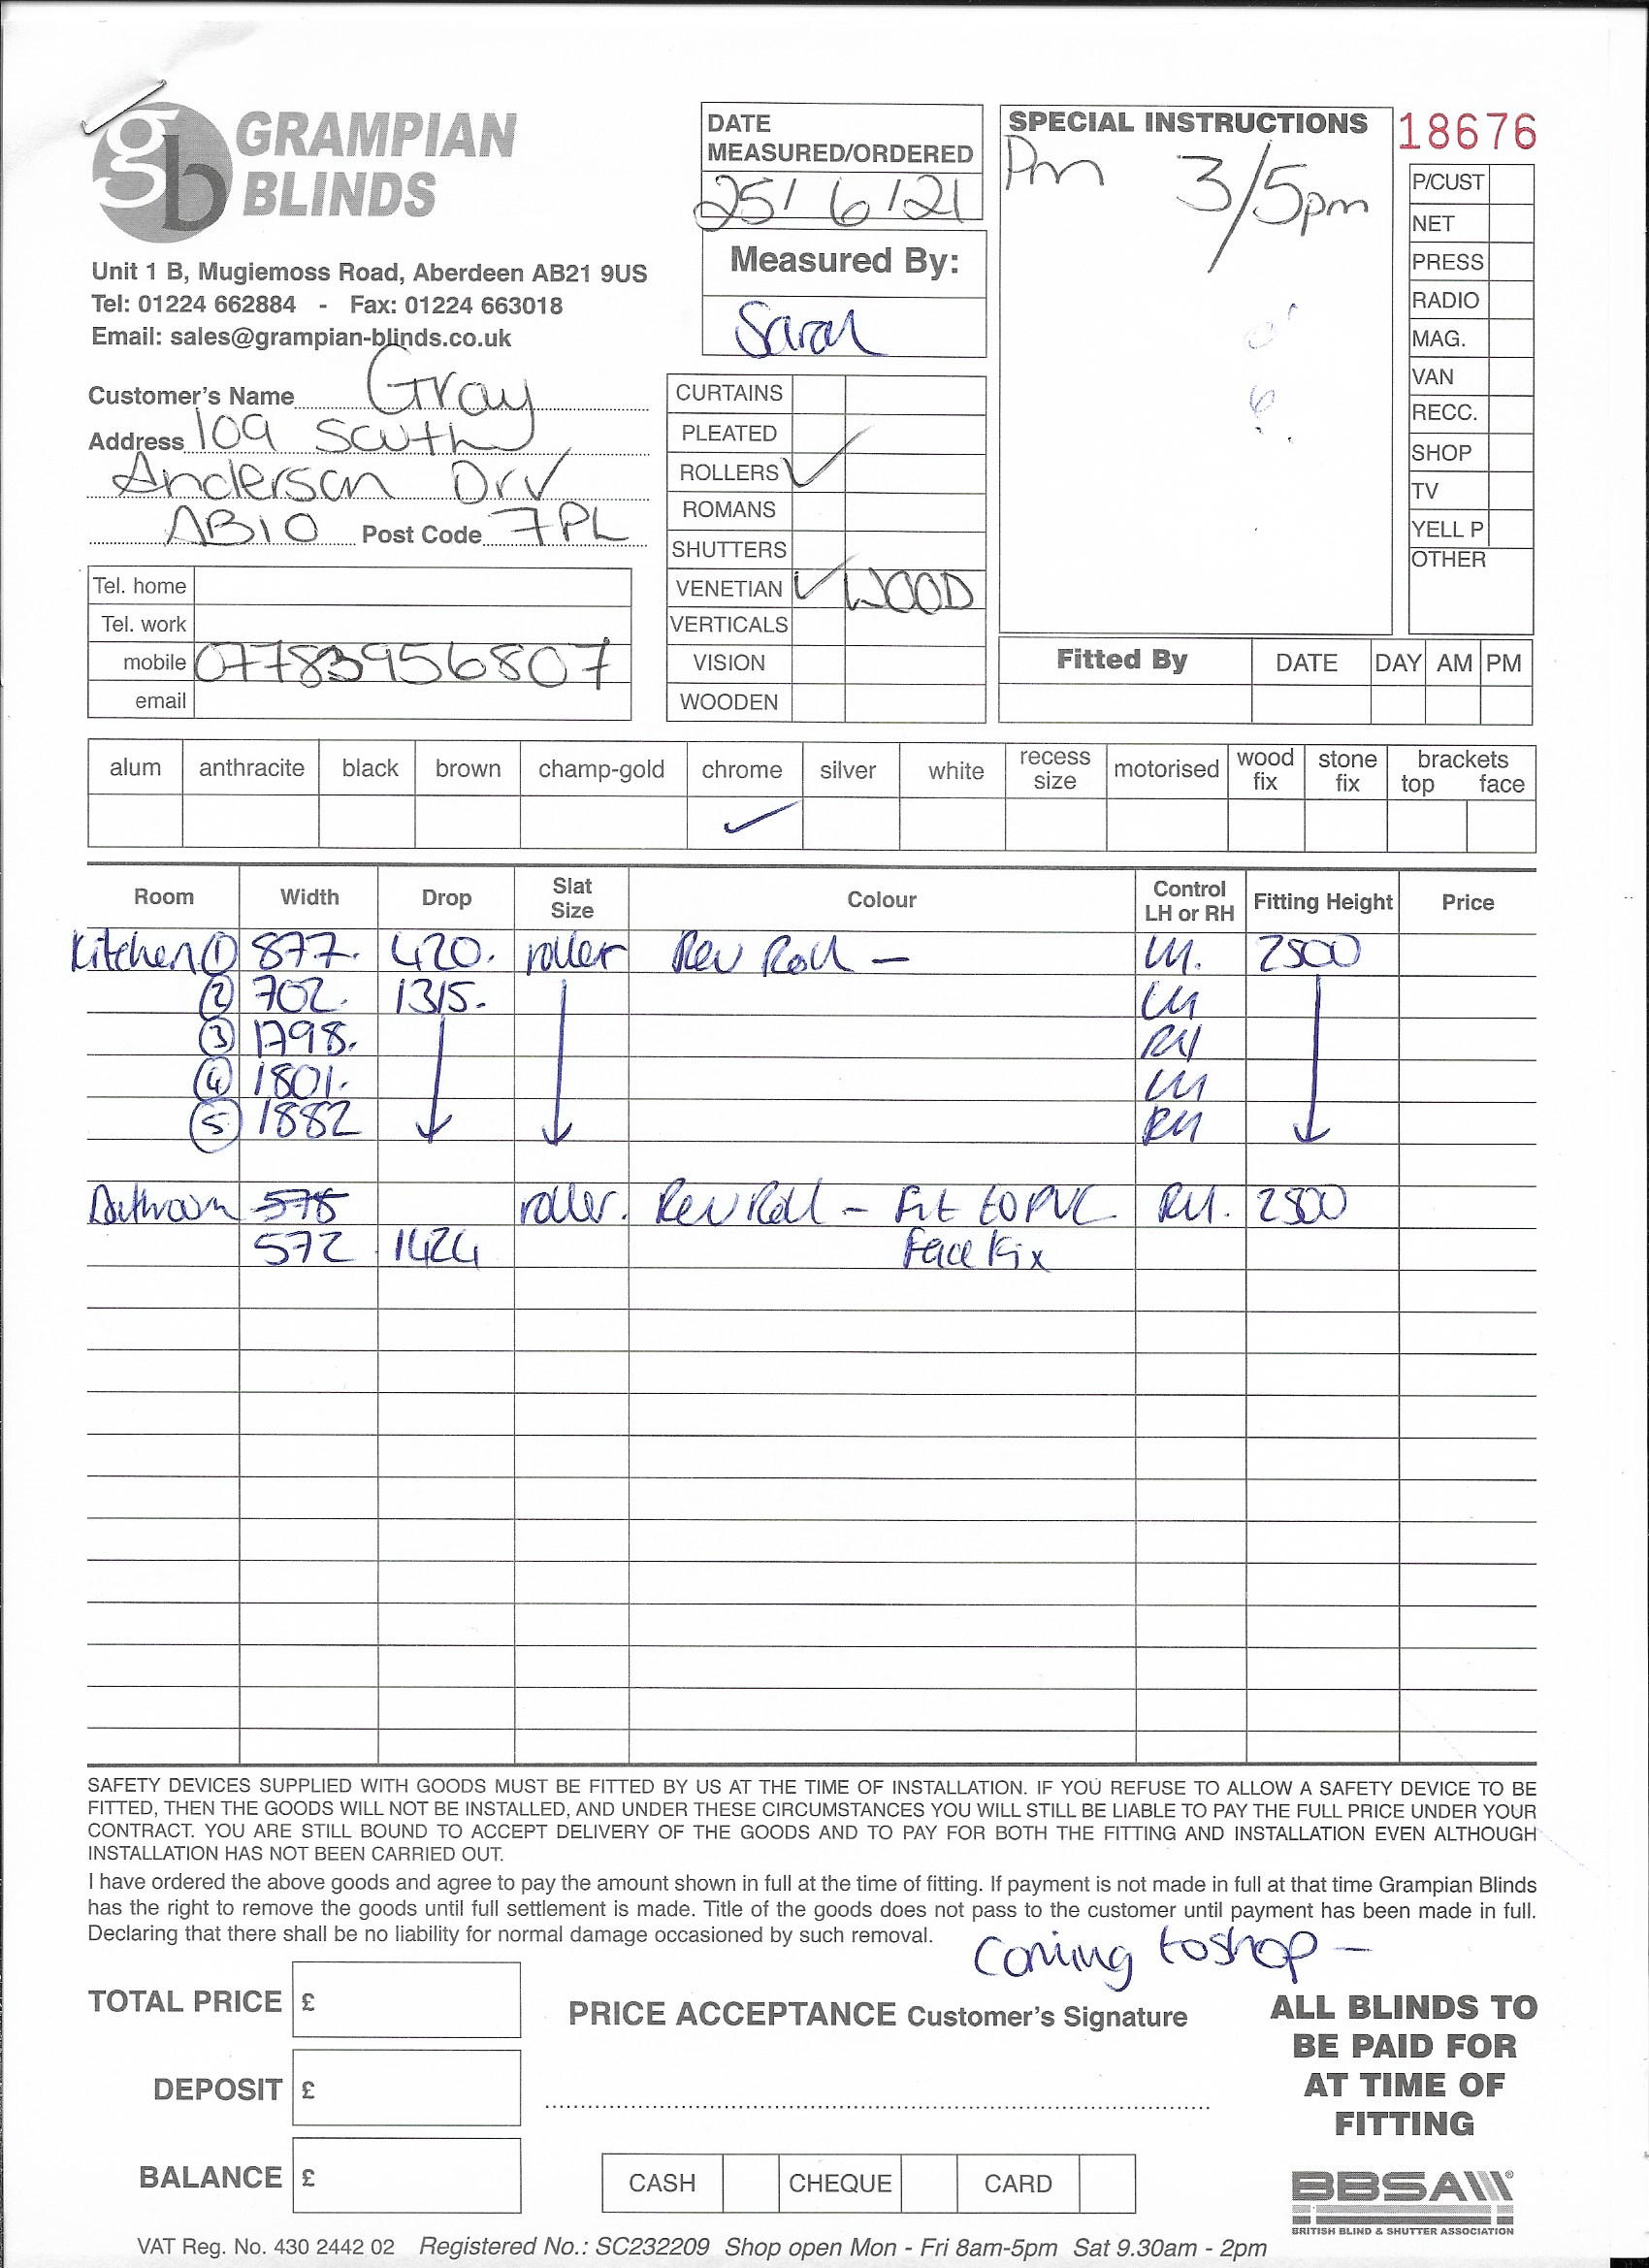 GRAMPIAN
BLINDS
Unit 1 B, Mugiemoss Road, Aberdeen AB21 9US
Tel: 01224 662884 - Fax: 01224 663018
Email: sales@grampian-blinds.co.uk
Customer's Name Gray
Address 109 South
Anderson Drv
AB10 Post Code 7PL
Tel. home
Tel. work
mobile 07783956807
email
DATE
MEASURED/ORDERED
25/6/21
Measured By:
Sarah
CURTAINS
PLEATED
ROLLERS ✓
ROMANS
SHUTTERS
VENETIAN ✓ WOOD
VERTICALS
VISION
WOODEN
SPECIAL INSTRUCTIONS
Pm 3/5pm
18676
P/CUST
NET
PRESS
RADIO
MAG.
VAN
RECC.
SHOP
TV
YELL P
OTHER
Fitted By DATE DAY AM PM
alum anthracite black brown champ-gold chrome silver white recess size motorised wood fix stone fix brackets top face
✓
Room Width Drop Slat Size Colour Control LH or RH Fitting Height Price
Kitchen ① 877. 420. roller Rev Roll - LH. 2500
② 702. 1315. LH
③ 1798. RH
④ 1801. LH
⑤ 1882 RH
Bathroom 578 roller. Rev Roll - Fit to PVC RH. 2300
572 1424 Face Fix
SAFETY DEVICES SUPPLIED WITH GOODS MUST BE FITTED BY US AT THE TIME OF INSTALLATION. IF YOU REFUSE TO ALLOW A SAFETY DEVICE TO BE
FITTED, THEN THE GOODS WILL NOT BE INSTALLED, AND UNDER THESE CIRCUMSTANCES YOU WILL STILL BE LIABLE TO PAY THE FULL PRICE UNDER YOUR
CONTRACT. YOU ARE STILL BOUND TO ACCEPT DELIVERY OF THE GOODS AND TO PAY FOR BOTH THE FITTING AND INSTALLATION EVEN ALTHOUGH
INSTALLATION HAS NOT BEEN CARRIED OUT.
I have ordered the above goods and agree to pay the amount shown in full at the time of fitting. If payment is not made in full at that time Grampian Blinds
has the right to remove the goods until full settlement is made. Title of the goods does not pass to the customer until payment has been made in full.
Declaring that there shall be no liability for normal damage occasioned by such removal.
Coming to shop -
TOTAL PRICE £
DEPOSIT £
BALANCE £
PRICE ACCEPTANCE Customer's Signature
CASH CHEQUE CARD
ALL BLINDS TO
BE PAID FOR
AT TIME OF
FITTING
BBSA
BRITISH BLIND & SHUTTER ASSOCIATION
VAT Reg. No. 430 2442 02 Registered No.: SC232209 Shop open Mon - Fri 8am-5pm Sat 9.30am - 2pm